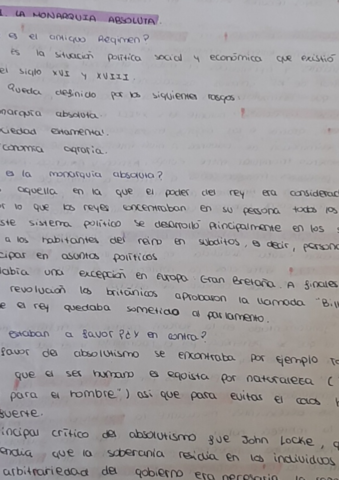 1. LA MONARQUIA ABSOLUTA.
es el antiguo Regimen?
Es la situación política social y económica que existió
el siglo XVI y XVIII.
Queda definido por los siguientes rasgos:
narquía absoluta
ciedad estamental.
conomía agraria.
es la monarquía absoluta?
aquella en la que el poder del rey era considerac
lo que los reyes concentraban en su persona todos los
ste sistema político se desarrolló principalmente en los s
a los habitantes del reino en subditos, es decir, person
cipar en asuntos políticos
labía una excepción en Europa Gran Bretaña. A finales
revolución los británicos aprobaron la llamada "Bill
e el rey quedaba sometido al parlamento.
estaban a favor? ¿Y en contra?
favor del absolutismo se encontraba por ejemplo
que el ser humano es egoista por naturaleza (
para el hombre") asi que para evitar el caos h
fuerte.
incipal crítico del absolutismo fue John Locke, q
endía que la soberanía residía en los individuos
arbitrariedad del gobierno era necesario la